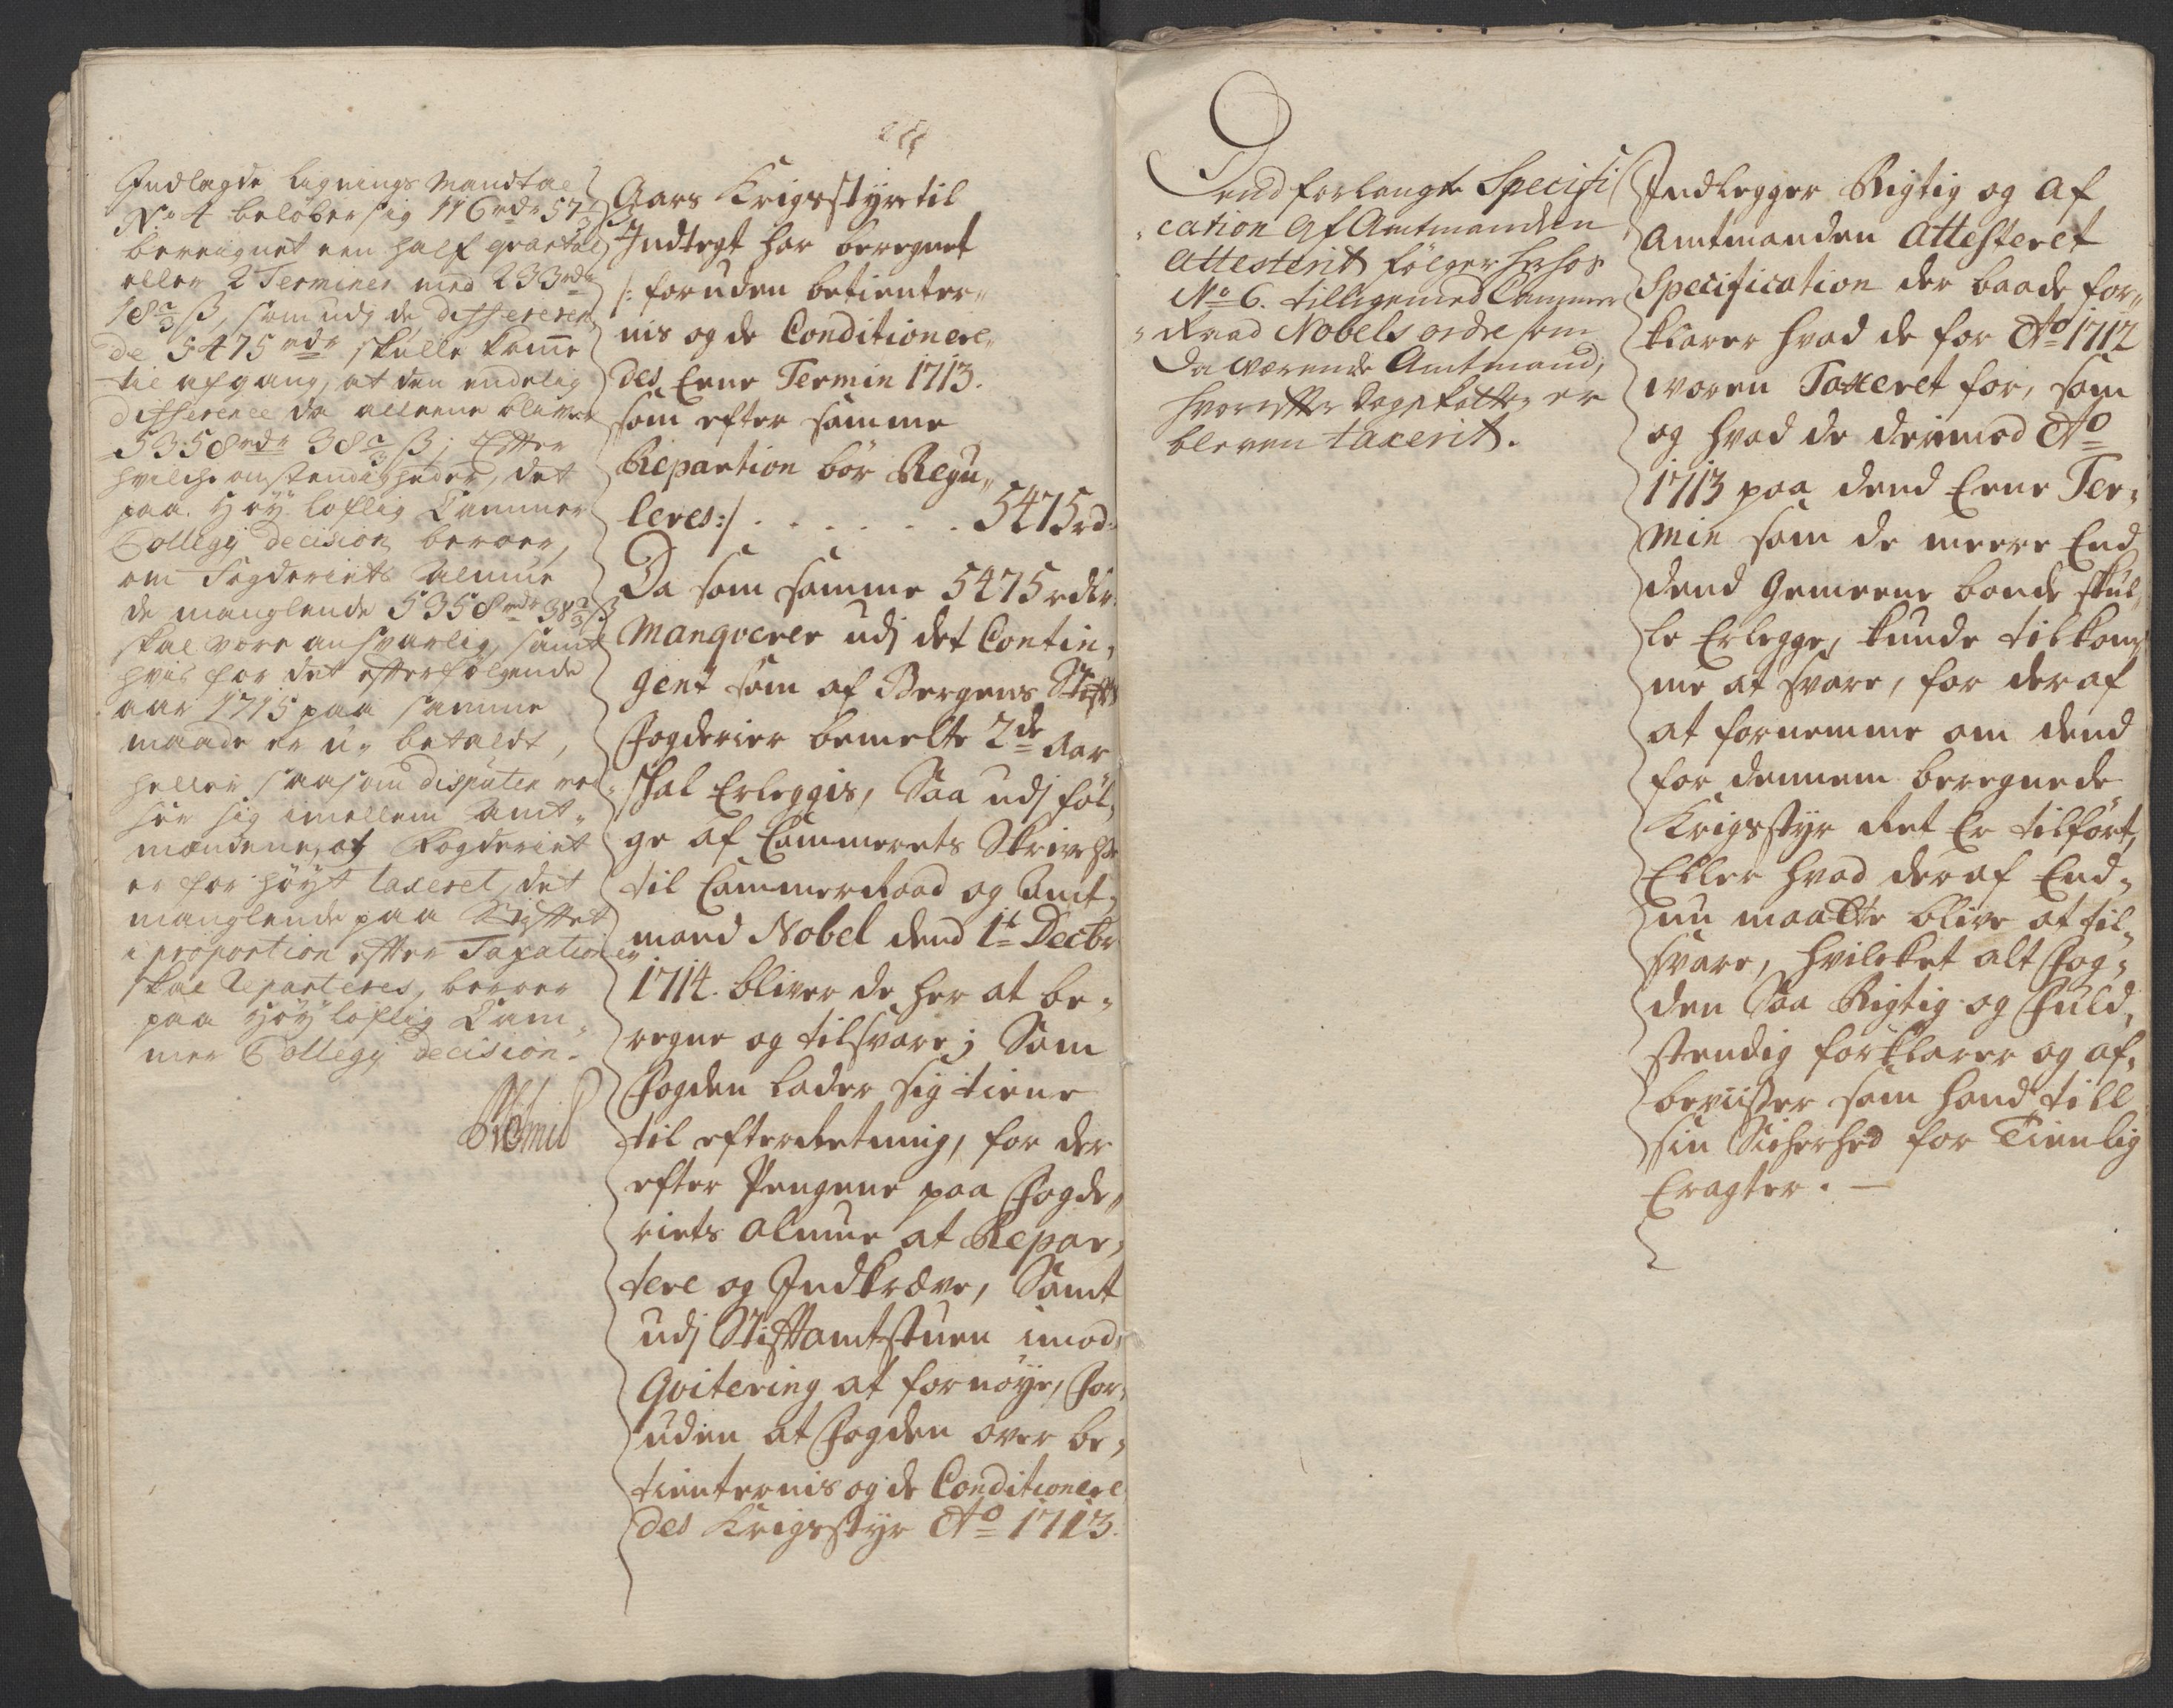 Indlagde Lignings Mandtal
No 4 beløber sig 116 rdr 57 1/3 ß
beregnet een half qvartal
eller 2 Terminer med 233 rdr
18 2/3 ß, som udj de differeren
de 5475 rdr skulle komme
til afgang, at den endelig
difference da alleene bliver
5358 rdr 38 2/3 ß; Efter
hvilche omstendigheder, det
paa Høy loflig Cammer
Collegij decision beroer,
om Fogderiets Almue
de manglende 5358 rdr 38 2/3 ß
skal være ansvarlig, samt
hvis for det efterfølgende
aar 1715 paa samme
maade er u- betaldt,
heller saasom disputen
sig imellem Amt-
mændene, at Fogderiet
er for høyt taxeret, det
manglende paa Stiftet
i proportion efter Taxationen
skal Reparteres, beroer
paa Høyloflig Cam-
mer Collegij decision.
Aars Krigsstyr til
Indtegt har beregnet
/: foruden betienter-
nis og de Conditionere-
des Eene Termin 1713.
som efter samme
Repartion bör Regu-
leres :/ . . . . . . . 5475 rd:
Da som samme 5475 rdlr
Manqverer udj det Contin-
gent som af Bergens Stifts
Fogderier bemelte 2de Aar
skal Erleggis, Saa udj föl-
ge af Cammerets Skrivelse
til Cammerraad og Amt-
mand Nobel dend 1t Decbr
1714. bliver de her at be-
regne og tilsvare; Som
Fogden lader sig tiene
til efterretning, for der
efter Pengene paa Fogde-
riets Almue at Repar-
tere og Indkræve, Samt
udj Stiftamtstuen imod
Qvitering at fornöye, For-
uden at Fogden over be-
tienternis og de Conditionere
des Krigsstyr Ao 1713.
Dend forlangte Specifi
cation Af Amtmanden
Attesterit følger herhos
No 6. tilligemed Cammer
Raad Nobels ordre som
Da værende Amtmand,
hvorefter Dagskatten er
bleven taxerit.
Indlegger Rigtig og Af
Amtmanden Attesteret
Specification der baade for-
klarer hvad de for Ao 1712
woren Taxeret for, som
og hvad de derimod Ao
1713 paa dend Eene Ter-
min som de meere End
dend Gemeene bonde skul
le Erlegge, kunde tilkom
me at svare, for deraf
at fornemme om dend
for dennem beregnede
Krigsstyr Ret Er tilfört,
Eller hvad deraf End-
nu maatte blive at til-
svare, hvilcket alt Fog-
den Saa Rigtig og Fuld-
stendig forklarer og af-
beviisser som hand till
sin Sicherhed for Tienlig
Eragter. —